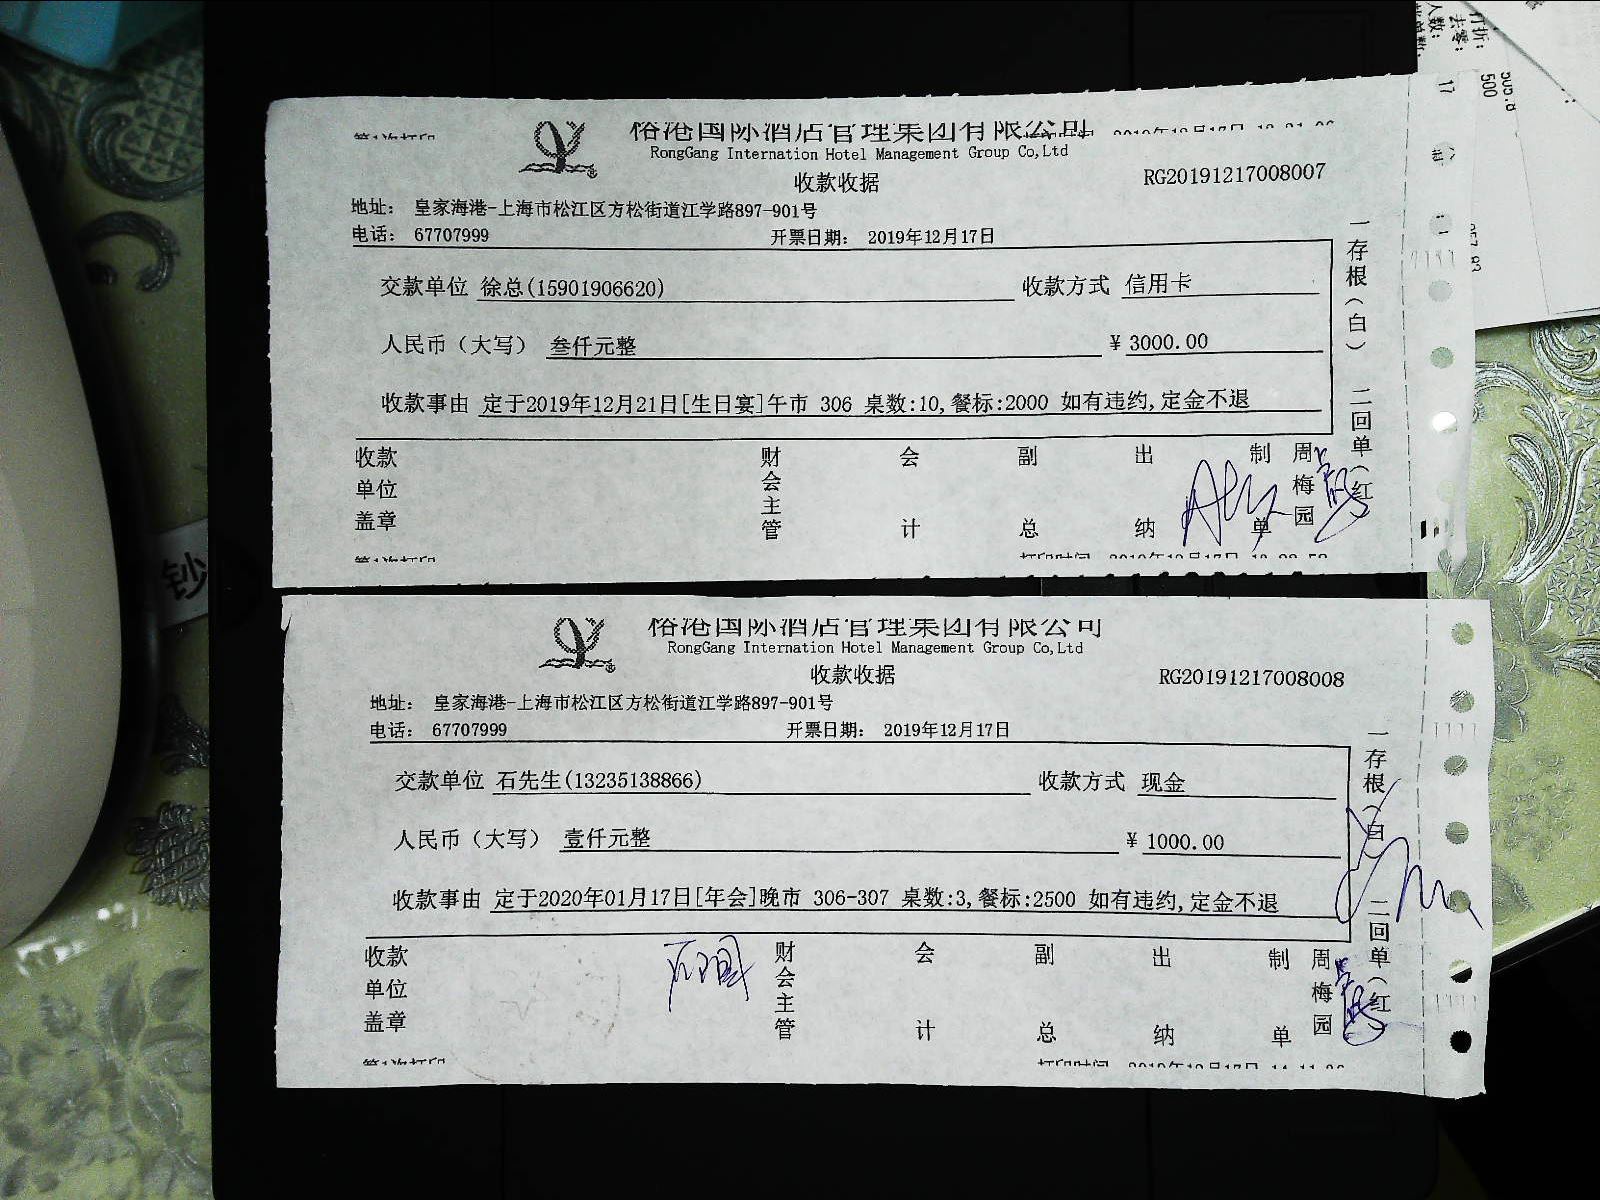 榕港国际酒店管理集团有限公司
RongGang Internation Hotel Management Group Co,Ltd
收款收据
RG20191217008007
地址： 皇家海港-上海市松江区方松街道江学路897-901号
电话： 67707999 开票日期： 2019年12月17日
交款单位 徐总(15901906620) 收款方式 信用卡
人民币（大写） 叁仟元整 ¥ 3000.00
收款事由 定于2019年12月21日[生日宴]午市 306 桌数:10,餐标:2000 如有违约,定金不退
一存根（白） 二回单（红
收款单位盖章 财会主管 会计 副总 出纳 制单 周梅园
榕港国际酒店管理集团有限公司
RongGang Internation Hotel Management Group Co,Ltd
收款收据
RG20191217008008
地址： 皇家海港-上海市松江区方松街道江学路897-901号
电话： 67707999 开票日期： 2019年12月17日
交款单位 石先生(13235138866) 收款方式 现金
人民币（大写） 壹仟元整 ¥ 1000.00
收款事由 定于2020年01月17日[年会]晚市 306-307 桌数:3,餐标:2500 如有违约,定金不退
一存根（白 二回单（红）
收款单位盖章 财会主管 会计 副总 出纳 制单 周梅园
钞
打折：
去零：
人数：
500
17